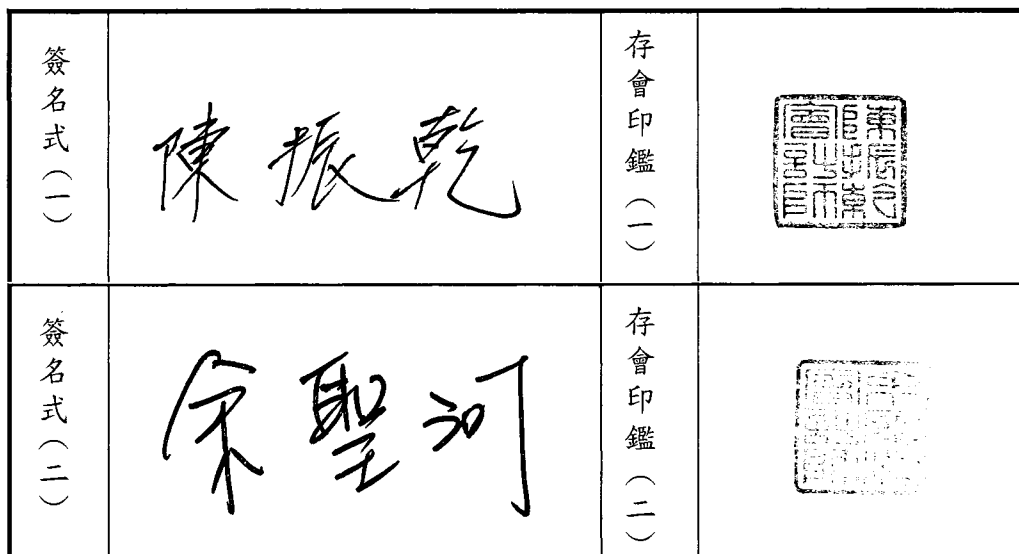 簽名式(一)
陳振乾
存會印鑑(一)
簽名式(二)
余聖河
存會印鑑(二)